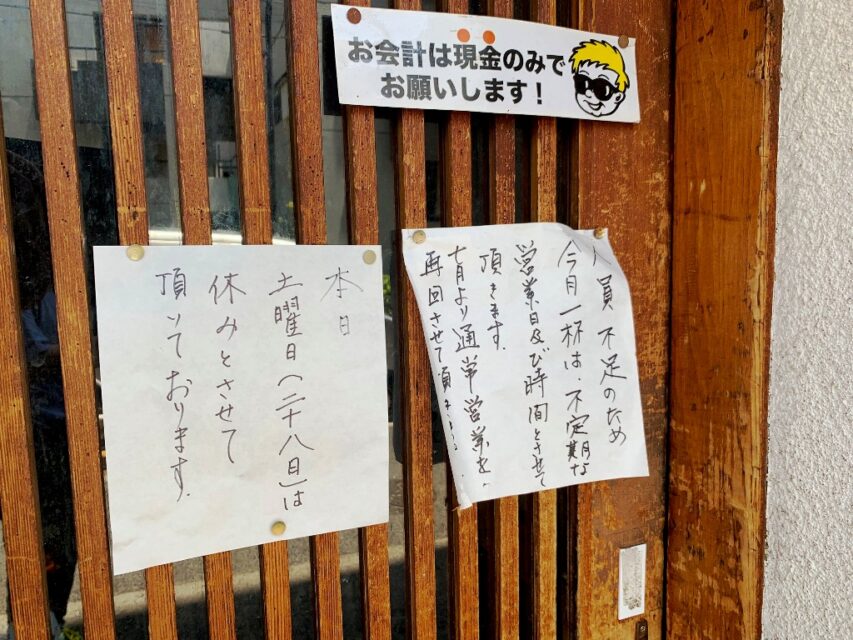 お会計は現金のみで
お願いします!
人員不足のため
今月一杯は、不定期な
営業日及び時間とさせて
頂きます。
七月より通常営業を、
再回させて頂きます。
本日
土曜日(二十八日)は
休みとさせて
頂いております。